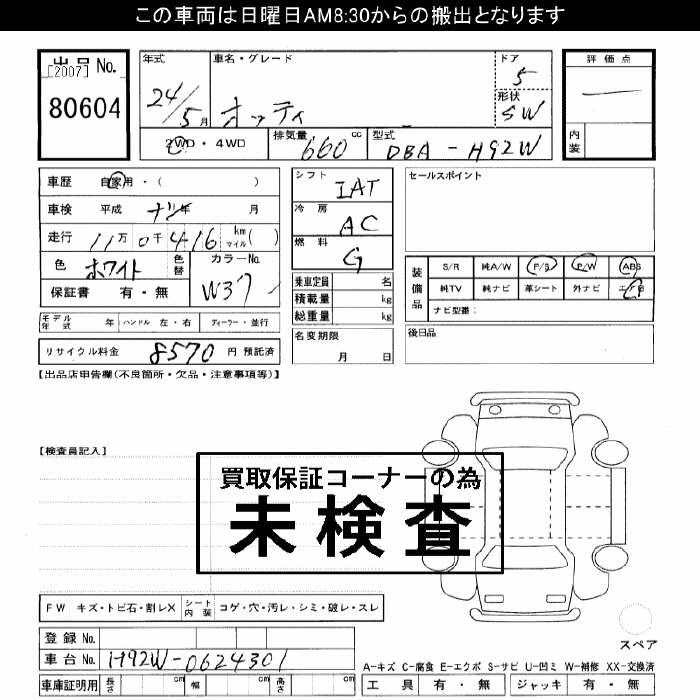 この車両は日曜日AM8:30からの搬出となります
出品 No.
[2007]
80604
年式
24/5月
車名・グレード
オッティ
ドア
5
形状
SW
2WD・4WD
排気量
660 cc
型式
DBA-H92W
評価点
内装
車歴 自家用・( )
車検 平成 ナシ 年 月
走行 11万0千416 km マイル( )
色 ホワイト 色替 カラーNo.
W37
保証書 有・無
モデル年式 年 ハンドル 左・右 ディーラー・並行
リサイクル料金 8570 円 預託済
シフト
IAT
冷房
AC
燃料
G
乗車定員 名
積載量 kg
総重量 kg
名変期限
月 日
セールスポイント
装備品
S/R 純A/W P/S P/W ABS
純TV 純ナビ 革シート 外ナビ エアB
ナビ型番:
後日品
【出品店申告欄(不良箇所・欠品・注意事項等)】
【検査員記入】
買取保証コーナーの為
未検査
FW キズ・トビ石・割レX シート内装 コゲ・穴・汚レ・シミ・破レ・スレ
スペア
登録 No.
車台 No. H92W-0624301
車庫証明用 長さ cm 幅 cm 高さ cm
A-キズ C-腐食 E-エクボ S-サビ U-凹ミ W-補修 XX-交換済
工具 有・無 ジャッキ 有・無